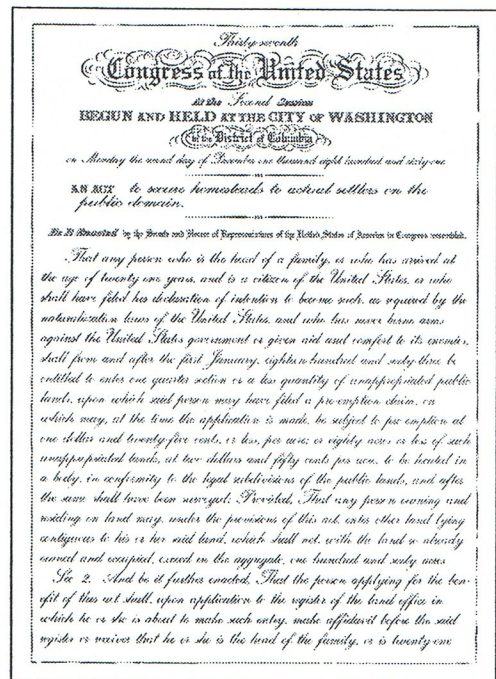 Thirty seventh
Congress of the United States
At the Second Session
BEGUN AND HELD AT THE CITY OF WASHINGTON
in the District of Columbia
on Monday the second day of December one thousand eight hundred and sixty-one
AN ACT to secure homesteads to actual settlers on the
public domain.
Be It Enacted by the Senate and House of Representatives of the United States of America in Congress assembled,
That any person who is the head of a family, or who has arrived at
the age of twenty one years, and is a citizen of the United States, or who
shall have filed his declaration of intention to become such, as required by the
naturalization laws of the United States, and who has never borne arms
against the United States government or given aid and comfort to its enemies,
shall from and after the first January, eighteen hundred and sixty-three be
entitled to enter one quarter section or a less quantity of unappropriated public
lands, upon which said person may have filed a pre-emption claim, or
which may, at the time the application is made, be subject to pre-emption at
one dollar and twenty-five cents, or less, per acre; or eighty acres or less of such
unappropriated lands, at two dollars and fifty cents per acre, to be located in
a body, in conformity to the legal subdivisions of the public lands, and after
the same shall have been surveyed: Provided, That any person owning and
residing on land may, under the provisions of this act, enter other land lying
contiguous to his or her said land, which shall not, with the land so already
owned and occupied, exceed in the aggregate one hundred and sixty acres
Sec 2. And be it further enacted, That the person applying for the ben-
efit of this act shall, upon application to the register of the land office in
which he or she is about to make such entry, make affidavit before the said
register or receiver that he or she is the head of the family, or is twenty-one